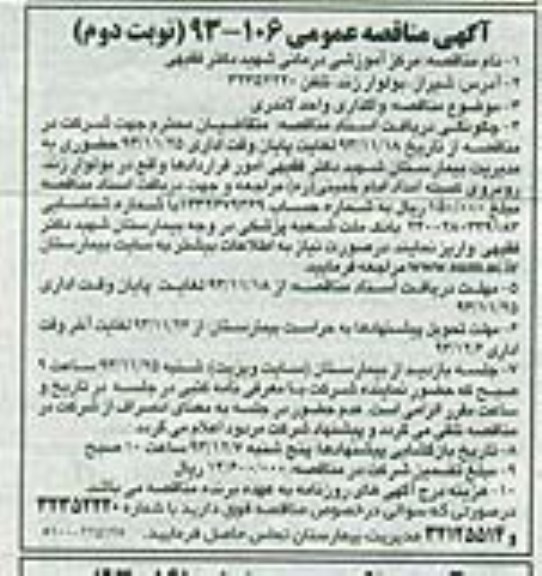 آگهی مناقصه عمومی ۱۰۶-۹۳ (نوبت دوم)
۱- نام مناقصه: مرکز آموزشی درمانی شهید دکتر فقیهی
۲- آدرس: شیراز، بولوار زند، تلفن
۳- موضوع مناقصه: واگذاری واحد لاندری
۴- چگونگی دریافت اسناد مناقصه: متقاضیان محترم جهت شرکت در
مناقصه از تاریخ ۹۳/۱۱/۱۸ لغایت پایان وقت اداری ۹۳/۱۱/۲۵ حضوری به
مدیریت بیمارستان شهید دکتر فقیهی امور قراردادها واقع در بولوار زند
روبروی کمیته امداد امام خمینی(ره) مراجعه و جهت دریافت اسناد مناقصه
مبلغ ریال به شماره حساب با شماره شناسایی
بانک ملت شعبه پزشکی در وجه بیمارستان شهید دکتر
فقیهی واریز نمایند درصورت نیاز به اطلاعات بیشتر به سایت بیمارستان
مراجعه فرمایید
۵- مهلت دریافت اسناد مناقصه: از ۹۳/۱۱/۱۸ لغایت پایان وقت اداری
۹۳/۱۱/۲۵
۶- مهلت تحویل پیشنهادها به حراست بیمارستان: از لغایت آخر وقت
اداری
۷- جلسه بازدید از بیمارستان (سایت ویزیت): شنبه ۹۳/۱۱/۲۵ ساعت ۹
صبح که حضور نماینده شرکت با معرفی نامه کتبی در جلسه در تاریخ و
ساعت مقرر الزامی است. عدم حضور در جلسه به معنای انصراف از شرکت در
مناقصه تلقی می گردد و پیشنهاد شرکت مردود اعلام می گردد
۸- تاریخ بازگشایی پیشنهادها: پنج شنبه ۹۳/۱۲/۷ ساعت ۱۰ صبح
۹- مبلغ تضمین شرکت در مناقصه: ریال
۱۰- هزینه درج آگهی های روزنامه به عهده برنده مناقصه می باشد
درصورتی که سوالی درخصوص مناقصه فوق دارید با شماره
و ۳۲۱۲۵۵۱۴ مدیریت بیمارستان تماس حاصل فرمایید.